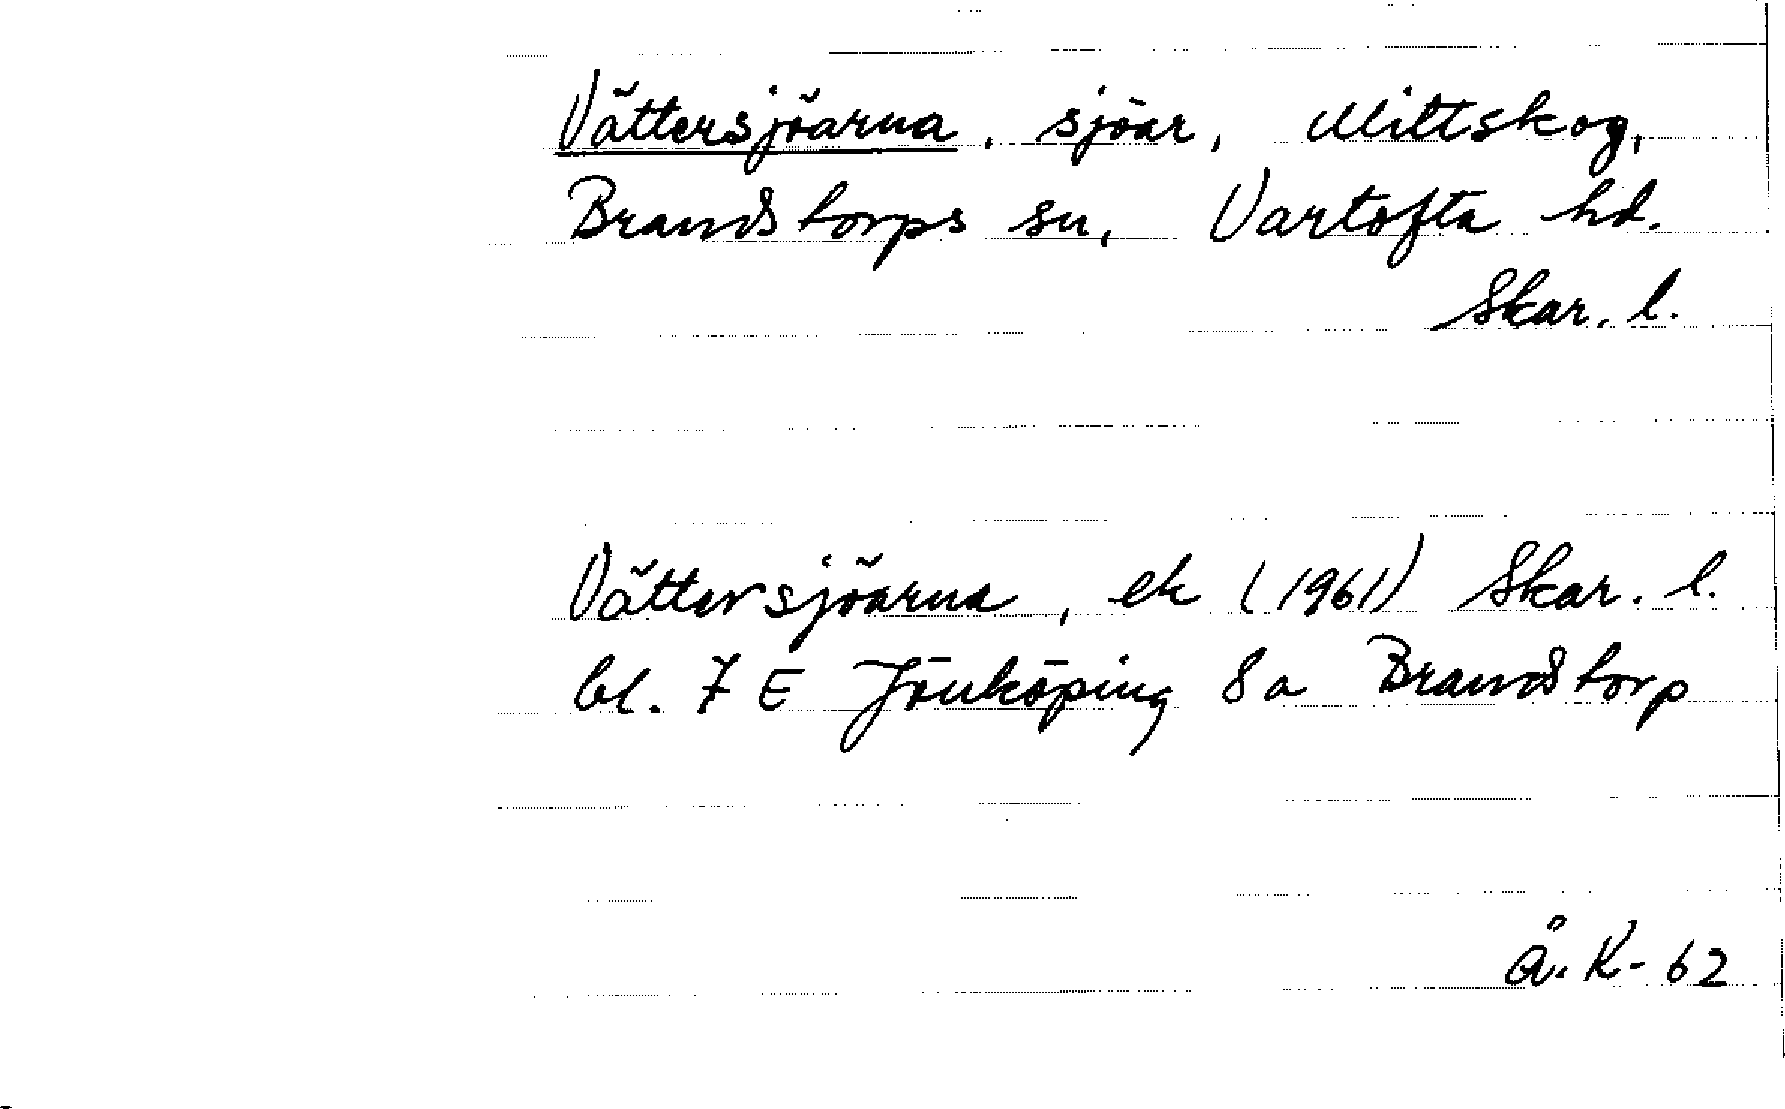 Vättersjöarna, sjöar, Miltskog,
Brandstorps sn, Vartofta hd.
Skar. l.
Vättersjöarna, ek (1961) Skar. l.
bl. 7 E Jönköping 8 a Brandstorp
Å. K-62